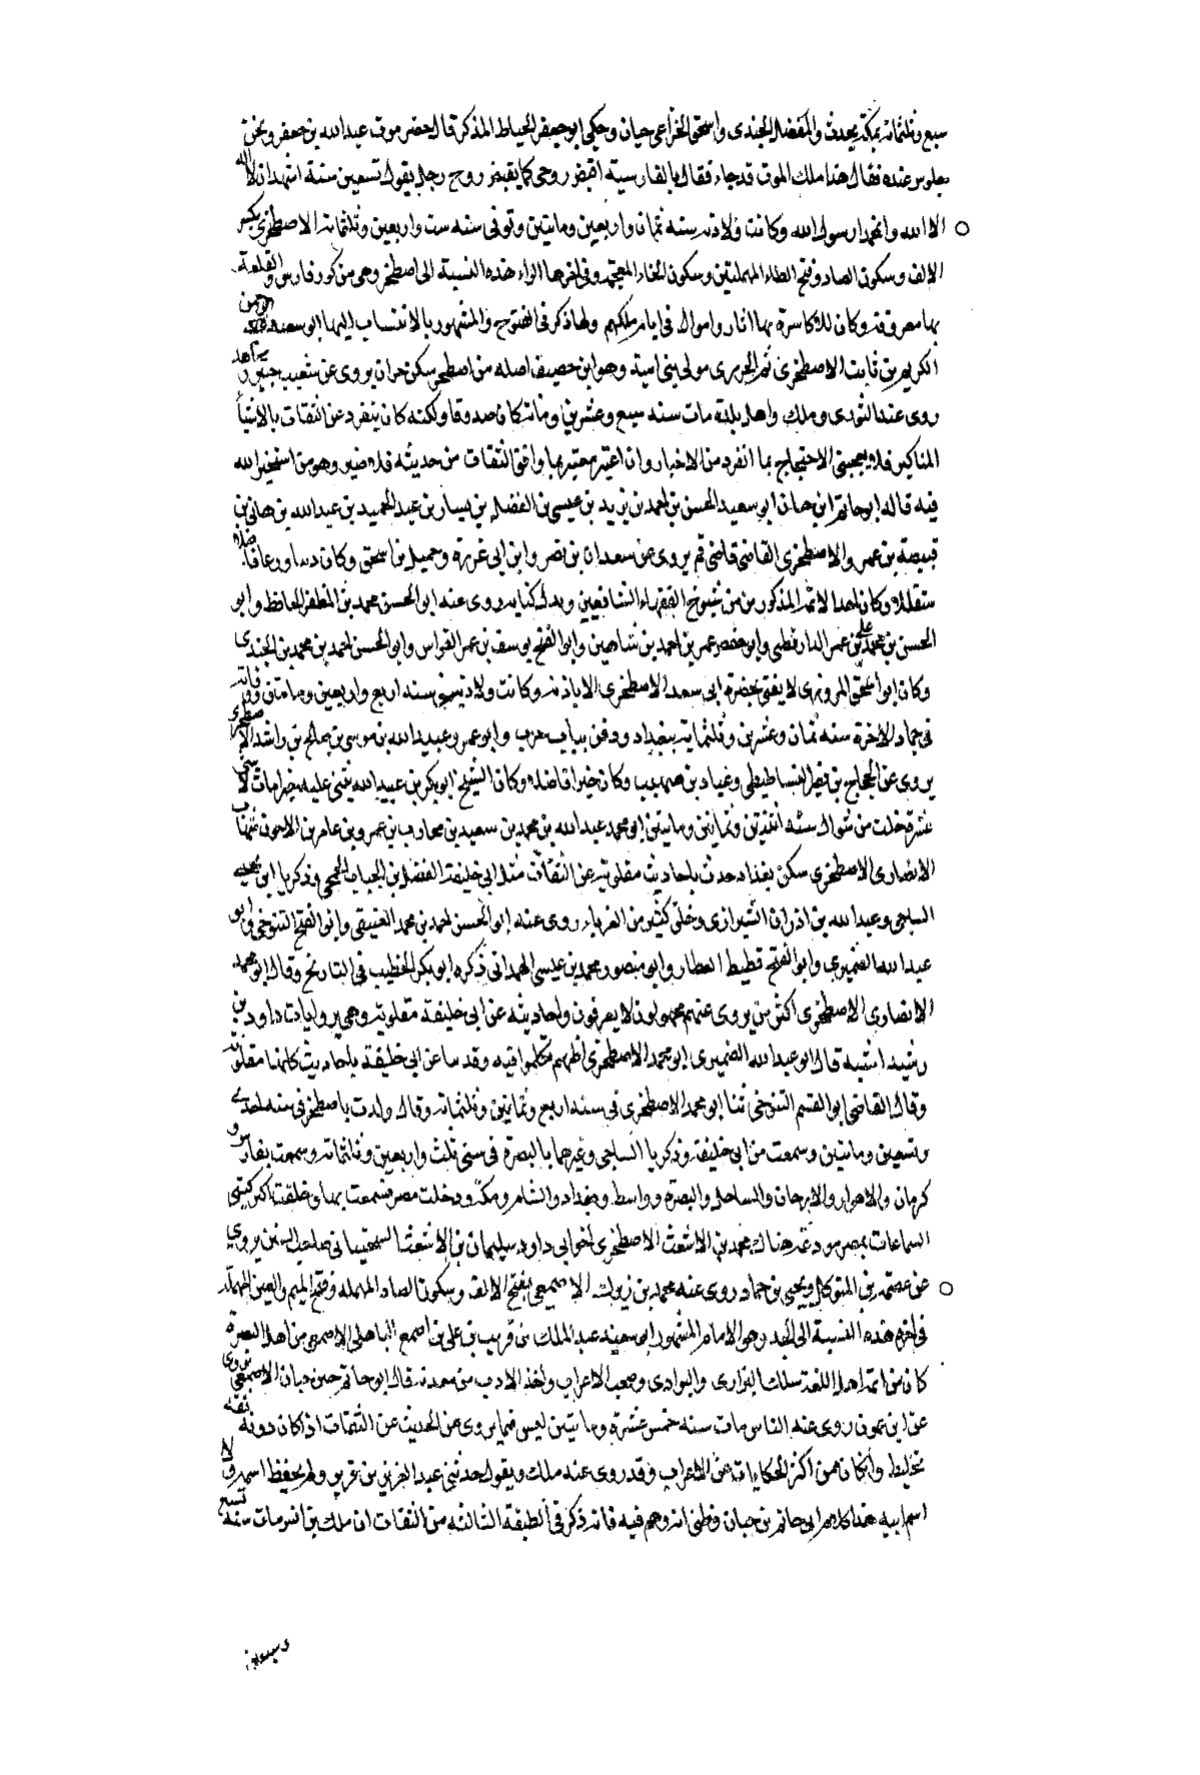 سبع وثلثمائة بمكة يحدث والمفضل الجندى واسحق الخزاعى حيان وحكى ابو جعفر الخياط المذكر قال حضر موت عبد الله بن جعفر ونحن
جلوس عنده فقال هذا ملك الموت قد جاء فقال بالفارسية اقبض روحى كما يقبض روح رجل يقول تسعين سنة اشهد ان لا اله
الا الله وان محمدا رسول الله وكانت ولادته سنة ثمان واربعين وماتين وتوفى سنه ست واربعين وثلثمائة الاصطخرى بكسر
الالف وسكون الصاد وفتح الطاء المهملتين وسكون الخاء المعجمة وفى اخرها الراء هذه النسبة الى اصطخر وهى من كور فارس والقلعة
بها معروفة وكان للاكاسرة بها اثار واموال فى ايام ملكهم ولها ذكر فى الفتوح والمشهور بالانتساب اليها ابو سعيد عبد
الكريم بن ثابت الاصطخرى ثم الجزرى مولى بنى امية وهو ابن خصيف اصله من اصطخر سكن حران يروى عن سعيد بن جبير ومجاهد
روى عنه الثورى وملك واهل بلده مات سنه سبع وعشرين ومائة كان صدوقا ولكنه كان ينفرد عن الثقات بالاشيا
المناكير فلا يعجبنى الاحتجاج بما انفرد من الاخبار وان اعتبر معتبر بما وافق الثقات من حديثه فلا ضير وهو من استخير الله
فيه قاله ابو حاتم ابن حبان ابو سعيد الحسن بن احمد بن يزيد بن عيسى بن الفضل بن يسار بن عبد الحميد بن عبد الله بن هانى بن
قبيصة بن عمرو الاصطخرى القاضى قاضى قم يروى عن سعدان بن نصر وابن ابى غرزة وحميل بن اسحق وكان دينا ورعا فاضلا
متقللا وكان احد الائمة المذكورين من شيوخ الفقهاء الشافعيين روى عنه ابو الحسن محمد بن المظفر الحافظ وابو
الحسن علي بن عمر الدارقطنى وابو حفص عمر بن احمد بن شاهين وابو الفتح يوسف بن عمر القواس وابو الحسن احمد بن محمد بن الجندى
وكان ابو اسحق المروزى لا يفتى بحضرة ابى سعيد الاصطخرى الا باذنه وكانت ولادته فى سنه اربع واربعين وماتين ووفاته
فى جماد الاخرة سنه ثمان وعشرين وثلثماية ببغداد ودفن بباب حرب وابو عمرو عبيد الله بن موسى بن صالح بن راشد الاصطخرى
يروى عن الحجاج بن نصير الفساطيطى وعباد بن صهيب وكان خيرا فاضلا وكان الشيخ ابو بكر بن عبيد الله يثنى عليه خيرا مات لاثنتى
عشرة خلت من شوال سنه اثنتين وثمانين وماتين ابو محمد عبد الله بن محمد بن سعيد بن محارب بن عمرو بن عامر بن الاحوص بن شهاب
الانصارى الاصطخرى سكن بغداد حدث باحاديث مقلوبة عن الثقات مثل ابى خليفة الفضل بن الحباب الجمحى وزكريا ابن يحيى
الساجى وعبد الله بن اذران الشيرازى وخلق كثير من الغرباء روى عنه ابو الحسن احمد بن محمد العتيقى وابو الفتح التنوخى وابو
عبد الله الصميرى وابو الفتح قطيط العطار وابو منصور محمد بن عيسى الهمدانى ذكره ابو بكر الخطيب فى التاريخ وقال ابو محمد
الانصارى الاصطخرى اكثر من يروى عنهم مجهولون لا يعرفون واحاديثه عن ابى خليفة مقلوبة وهى بروايات داود بن
رشيد اشبه قال ابو عبد الله الصميرى ابو محمد الاصطخرى اظنهم تكلموا فيه وقد سا عن ابى خليفة باحاديث كانها مقلوبة
وقال القاضى ابو القسم التنوخى ثنا ابو محمد الاصطخرى فى سنه اربع وثمانين وثلثمائة وقال ولدت باصطخر فى سنه احدى
وتسعين وماتين وسمعت من ابى خليفة وزكريا الساجى وغيرهما بالبصرة فى سنى ثلث واربعين وثلثمائه وسمعت بفارس و
كرمان والاهواز والارجان والساحل والبصرة وواسط وبغداد والشام ومكة ودخلت مصر فسمعت بها وخلفت اكثر كتبى
السماعات بمصر مودعة هناك ومحمد بن الاشعث الاصطخرى اخو ابى داود سليمان بن الاشعث السجستانى صاحب السنن يروى
عن عصمة بن المتوكل ويحيى بن حماد روى عنه محمد بن زيرك الاصمعى بفتح الالف وسكون الصاد المهمله وفتح الميم والعين المهملة
فى اخره هذه النسبة الى الجد وهو الامام المشهور ابو سعيد عبد الملك بن قريب بن على بن اصمع الباهلى الاصمعى من اهل البصرة
كان من ائمة اهل اللغة سلك البرارى والبوادى وصحب الاعراب واخذ الادب من معدنه قال ابو حاتم بن حبان الاصمعى يروى
عن ابن عون روى عنه الناس مات سنه خمس عشرة وماتين ليس فيما يروى عن الحديث عن الثقات اذا كان دونه ثقة
تخليط وان كان من اكثر الحكايات عن الاعراب وقد روى عنه ملك ويقول حدثنى عبد العزيز بن قرير ولم يحفظ اسمه ولا
اسم ابيه هذا كلام ابى حاتم بن حبان وظنى انه وهم فيه فانه ذكر فى الطبقة الثالثه من الثقات ان ملك بن انس مات سنة تسع